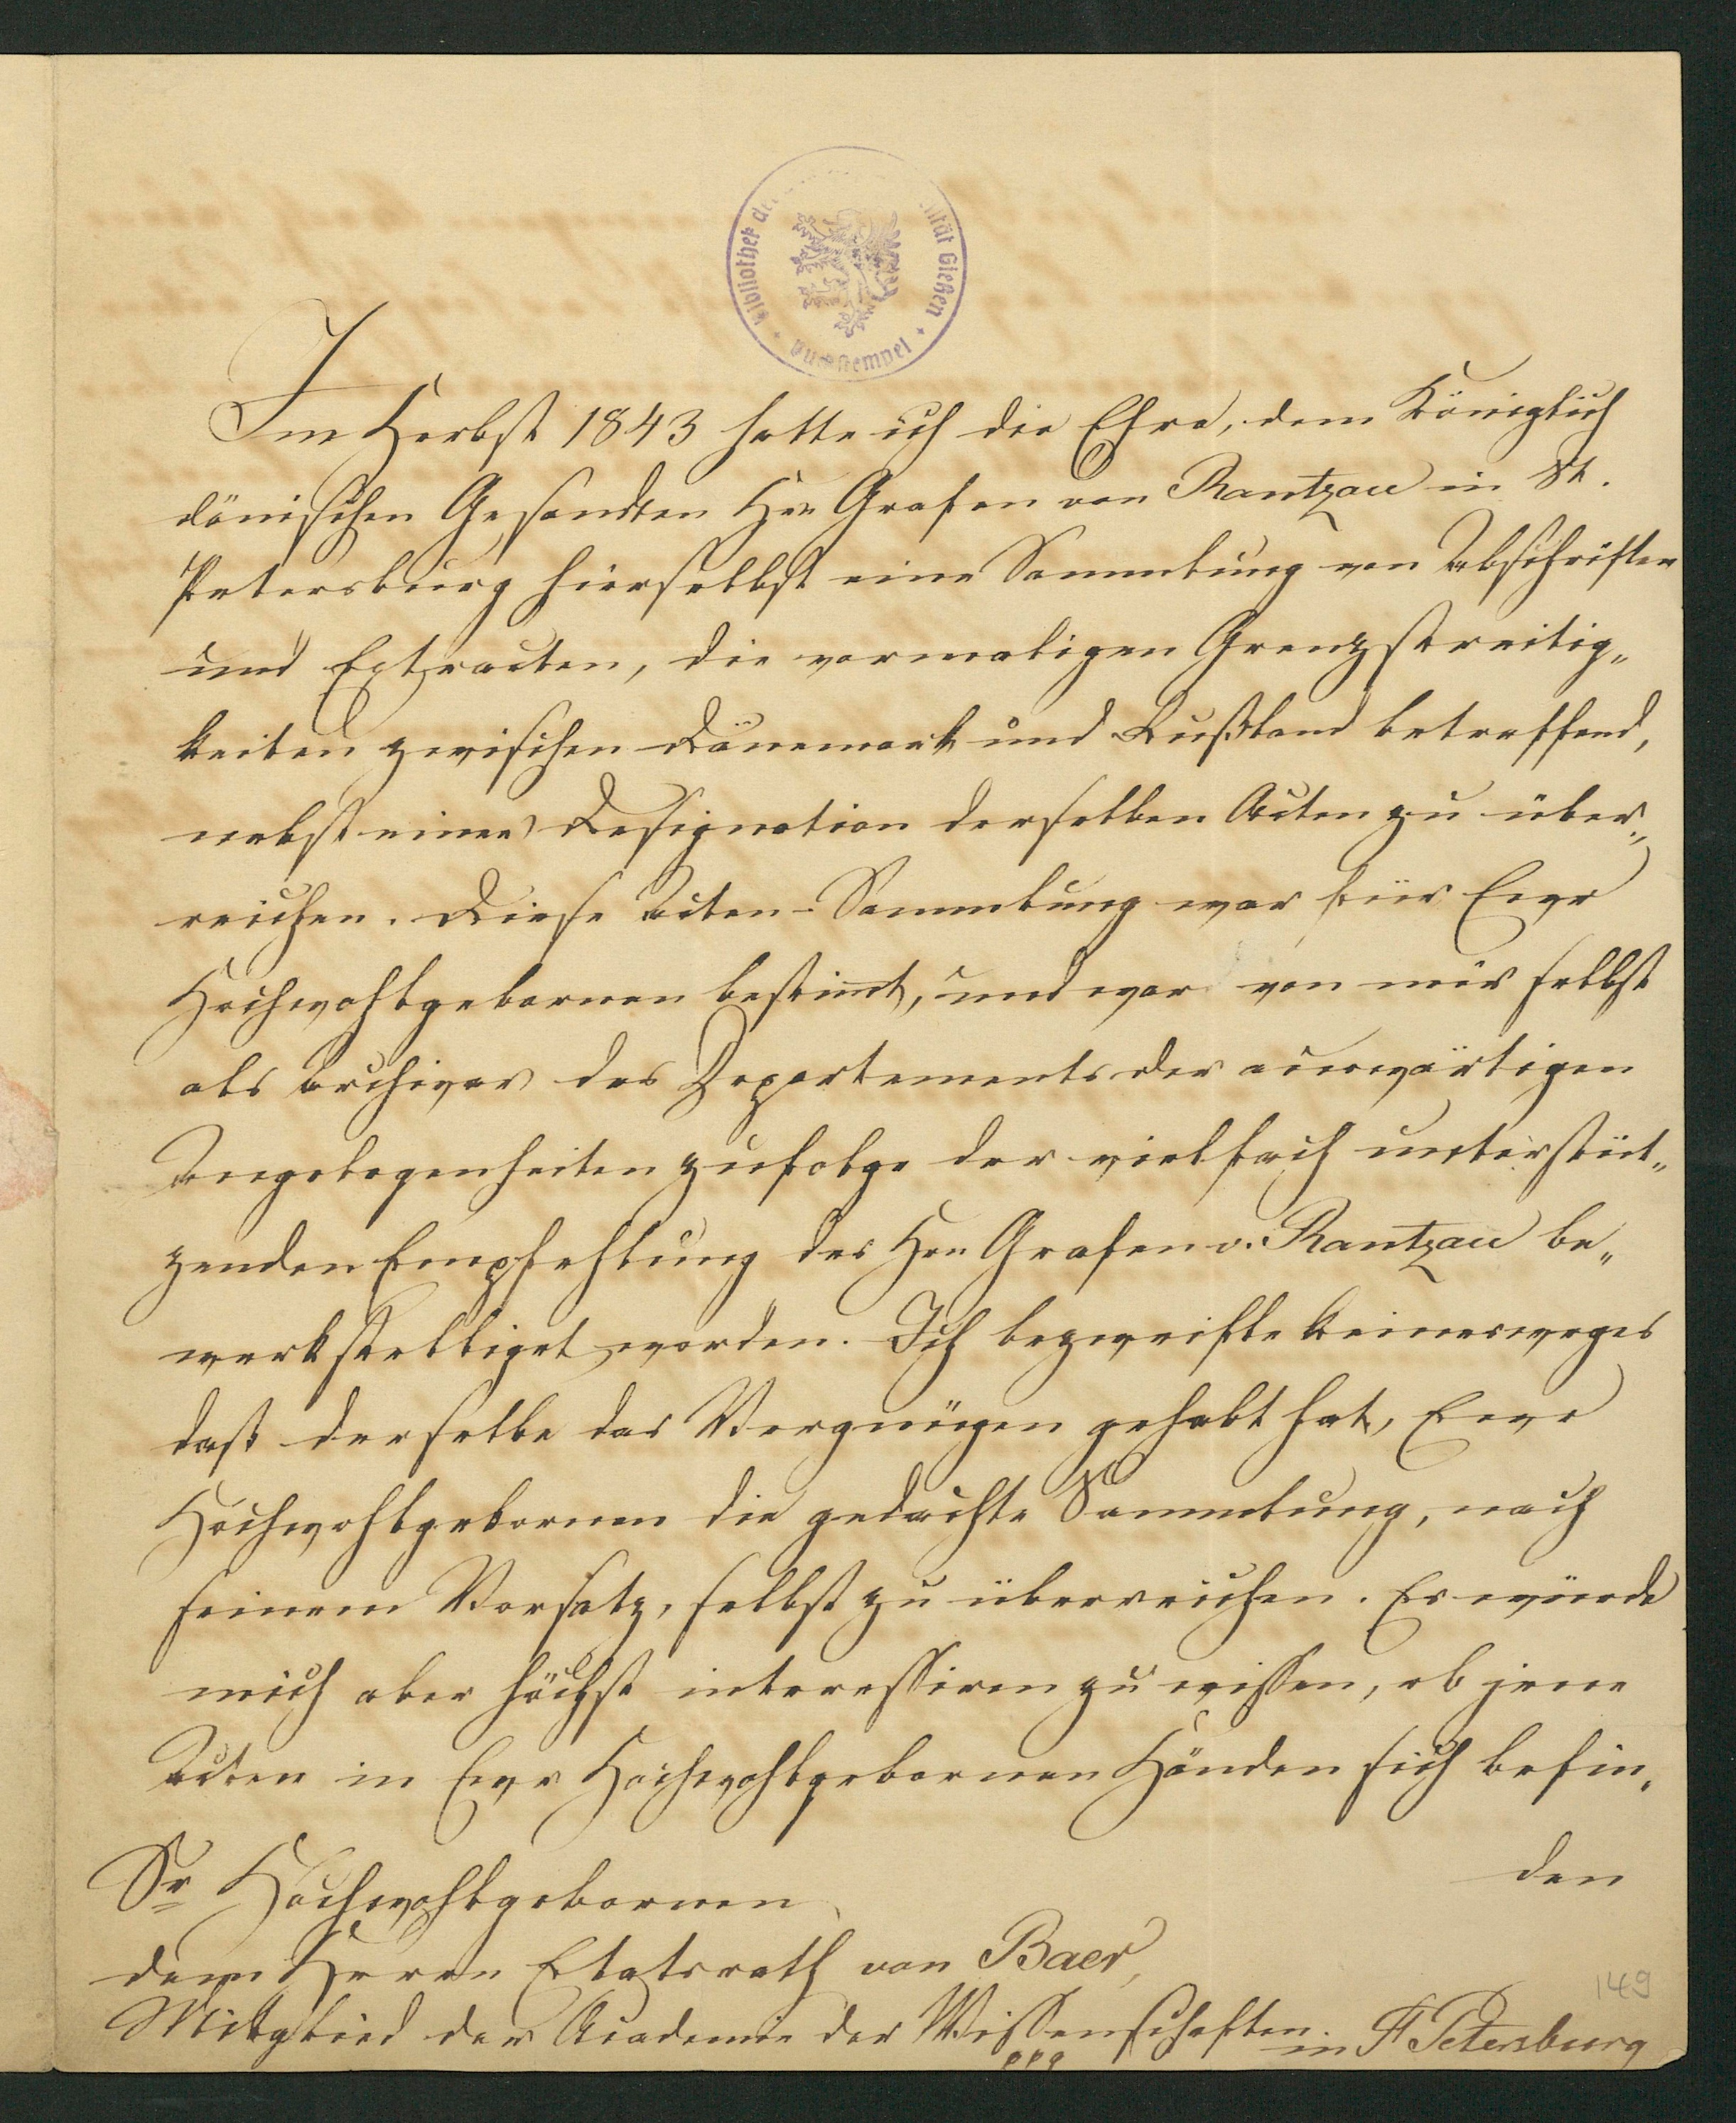 Bibliothek de ität Gießen
Buchstempel
Im Herbst 1843 hatte ich die Ehre, dem Königlich
dänischen Gesandten Hrn Grafen von Rantzau in St.
Petersburg hierselbst eine Sammlung von Abschriften
und Extracten, die vormaligen Grenzstreitig„
keiten zwischen Dänemark und Rußland betreffend,
nebst einer Designation derselben Acten zu über„
reichen. Diese Acten-Sammlung war für Ewr
Hochwohlgebornen bestimt, und war von mir selbst
als Archivar des Departements der auswärtigen
Angelegenheiten zufolge der vielfach unterstüt„
zenden Empfehlung des Hrn Grafen v. Rantzau be„
werkstelliget worden. Ich bezweifle keinesweges
daß derselbe das Vergnügen gehabt hat, Ewr
Hochwohlgebornen die gedachte Sammlung, nach
seinem Vorsatz, selbst zu überreichen. Es würde
mich aber höchst interessiren zu wissen, ob jene
Acten in Ewr Hochwohlgebornen Händen sich befin„
den
Sr Hochwohlgebornen
dem Herrn Etatsrath von Baer,
Mitglied der Academie der Wissenschaften in St Petersburg
ppp
149